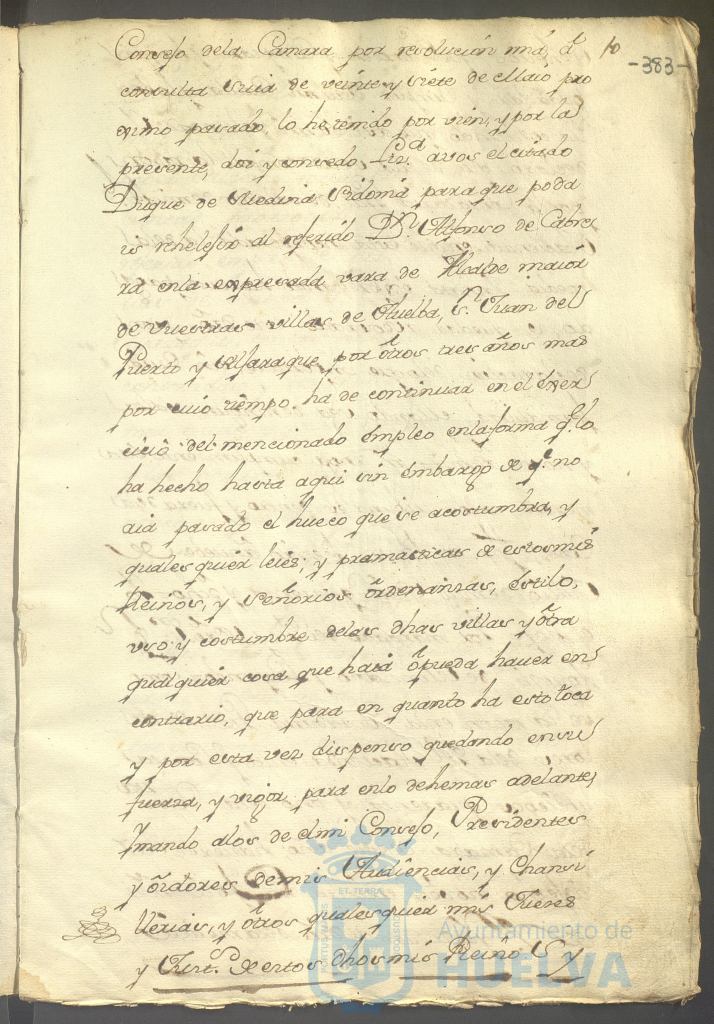 Consejo dela Camara por resolucion mia, â 10
-383-
consulta suia de veinte y siete de Maio pro
ximo pasado, lo he tenido por vien, y por la
presente, doi y concedo Liz.ª avos el citado
Duque de Medina Sidonia para que podâ
is rehelejir al referido Dn. Alfonso de Cabre
ra enla expresada vara de Alcalde maior
de vuestras villas de Huelba, Sn. Juan del
Puerto y Aljaraque, por ôtros tres años mas
por cuio tiempo, ha de continuar en el êxer
cicio del mencionado êmpleo enla forma q.e lo
ha hecho hasta aqui sin êmbargo de q.e no
aiâ pasado el hueco que se acostumbra, y
quales quier leies, y pramasticas de estos mis
Reinos, y señorios ôrdenanzas, êstilo,
vso, y costumbre delas dhas villas y ôtra
qualquier cosa que haiâ ô pueda hauer en
contrario, que para en quanto ha esto toca
y por esta vez dispenso quedando en su
fuerza, y vigor para enlo dehemas adelante,
y mando alos de el mi Consejo, Presidentes
y ôidores de mis Audiencias, y Chansi
llerias, y ôtros quales quier mis Jueces
y Just.as de estos dhos mis Reinos y
ET TERRÆ
Ayuntamiento de
HUELVA